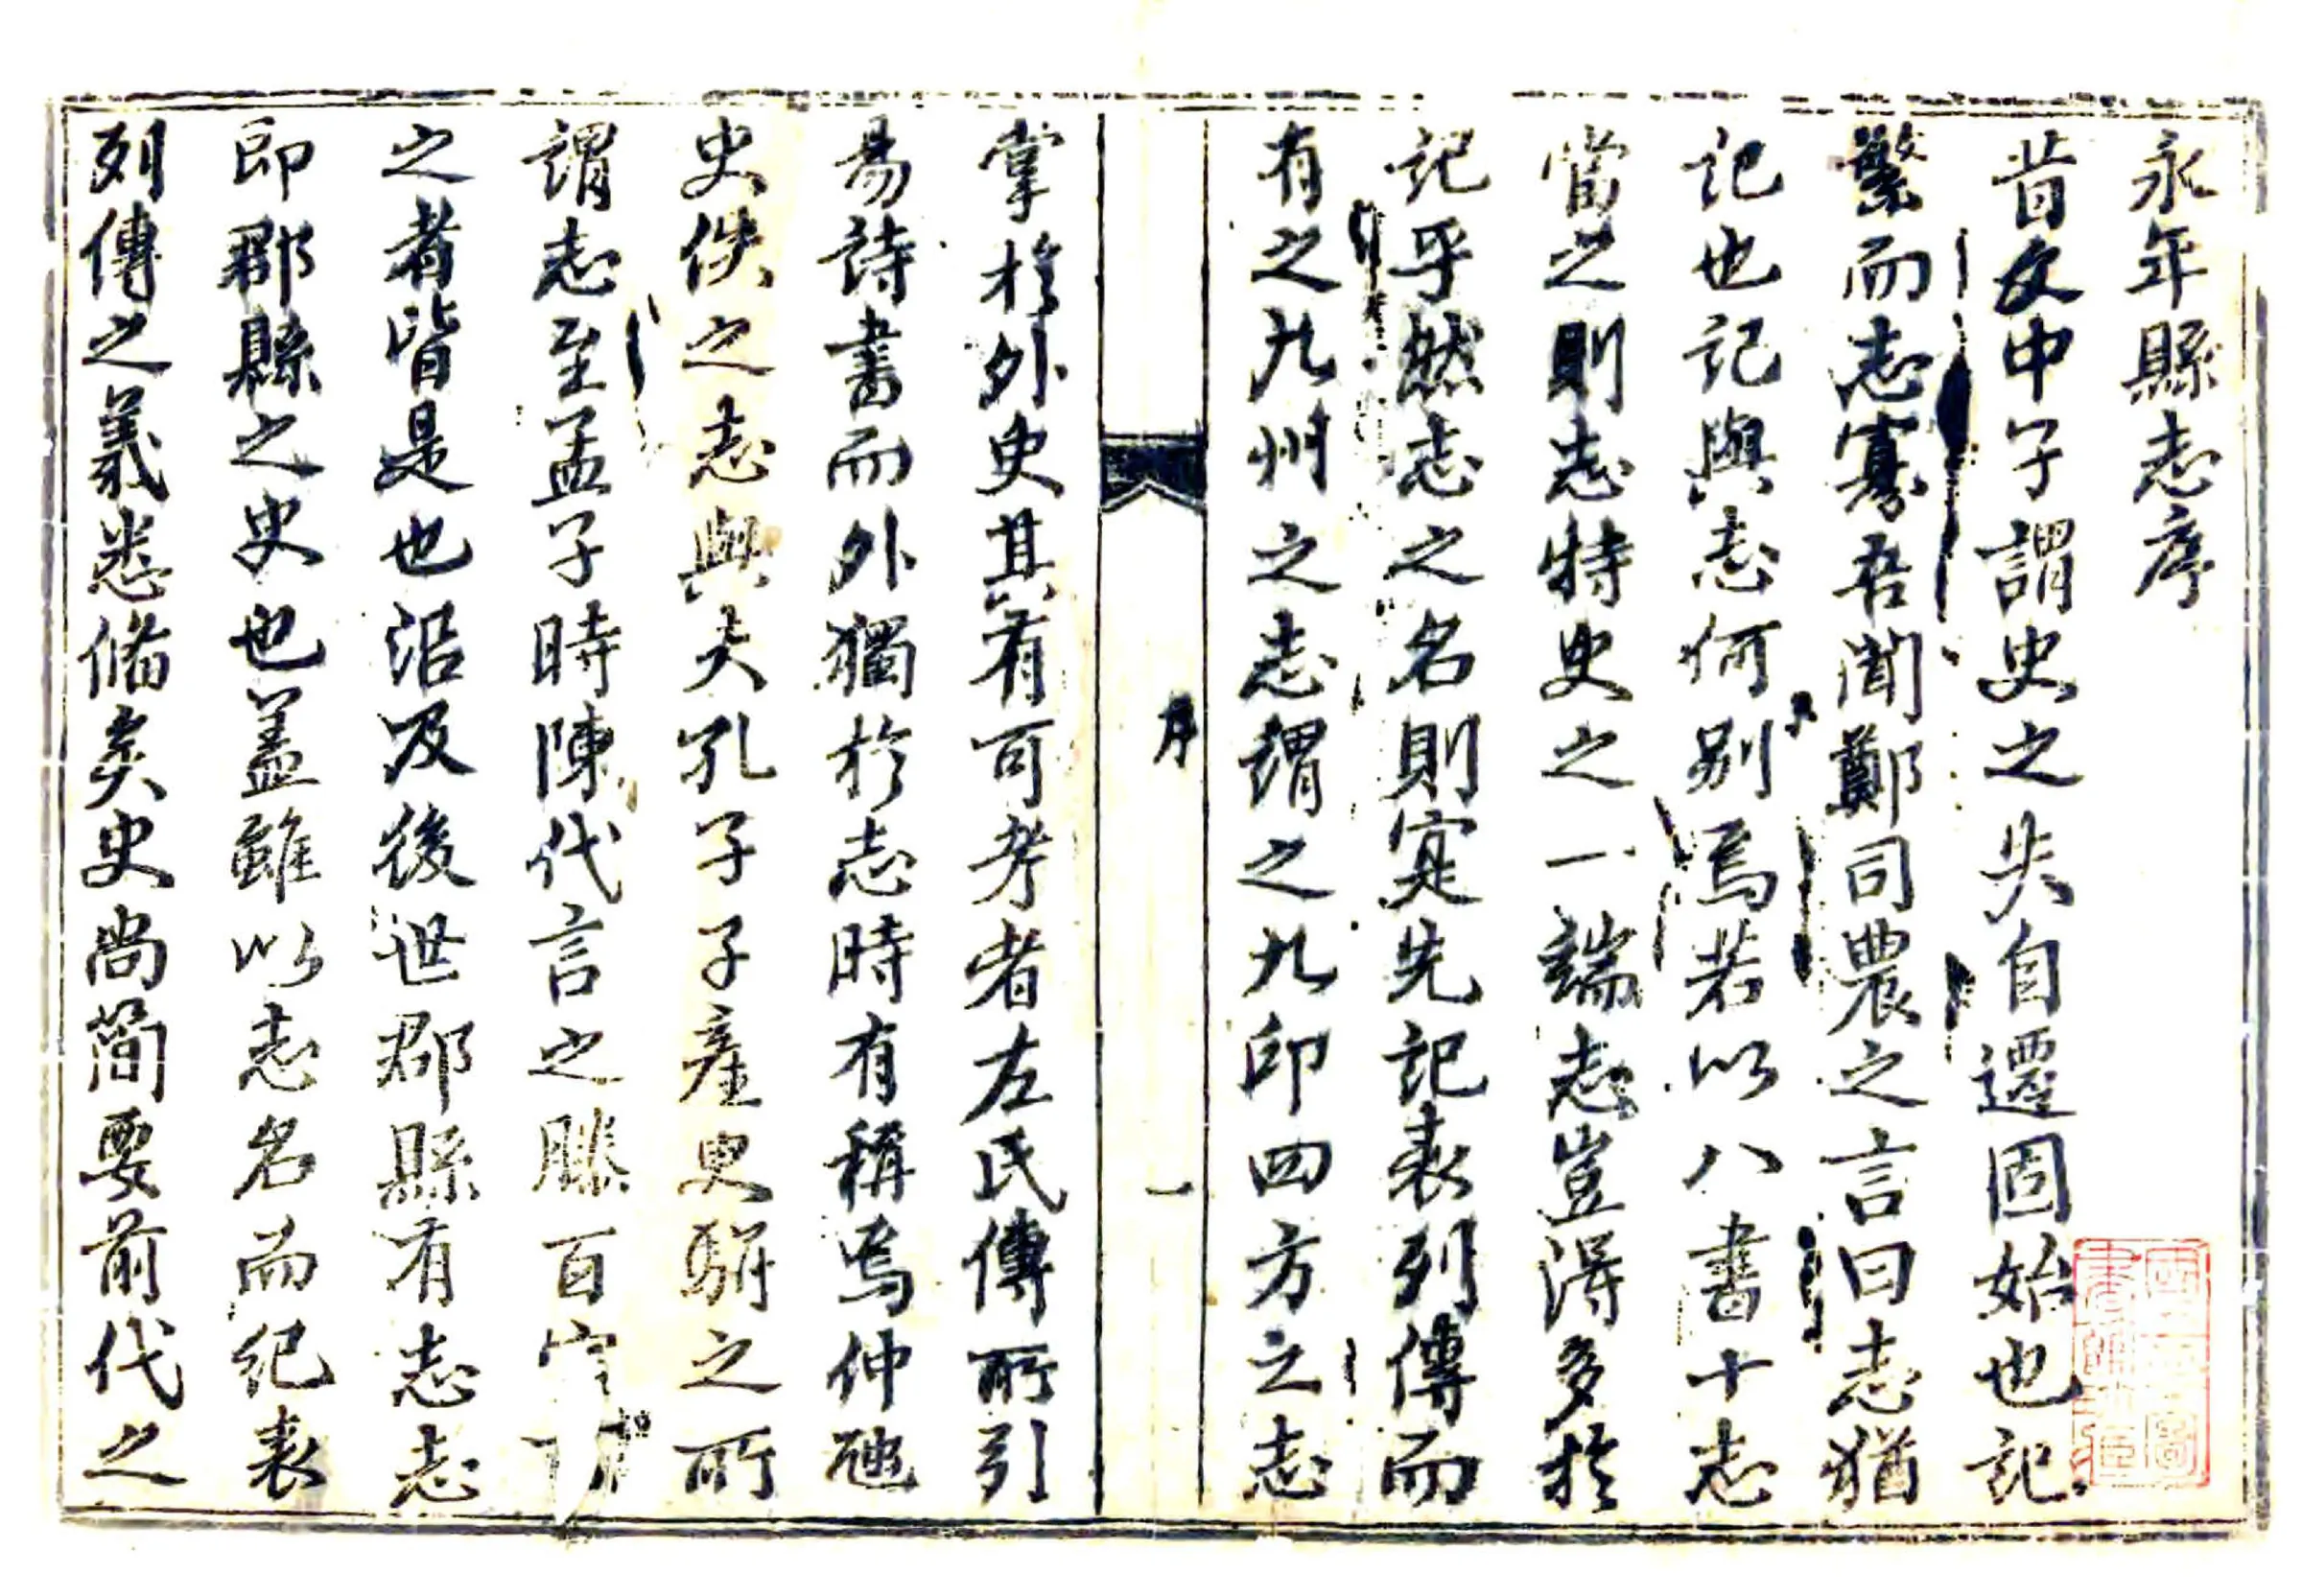 永年縣志序
昔文中子謂史之失自遷固始也記
繁而志寡吾聞鄭司農之言曰志猶
記也記與志何別焉若以八書十志
當之則志特史之一端志豈得多於
記乎然志之名則寔先記表列傳而
有之九州之志謂之九印四方之志
序
一
掌於外史其有可考者左氏傳所引
易詩書而外獨於志時有稱焉仲虺
史佚之志與夫孔子子產史駢之所
謂志至孟子時陳代言之滕百官
之者皆是也沿及後世郡縣有志志
即郡縣之史也蓋雖以志名而紀表
列傳之義悉偹矣史尚簡要前代之